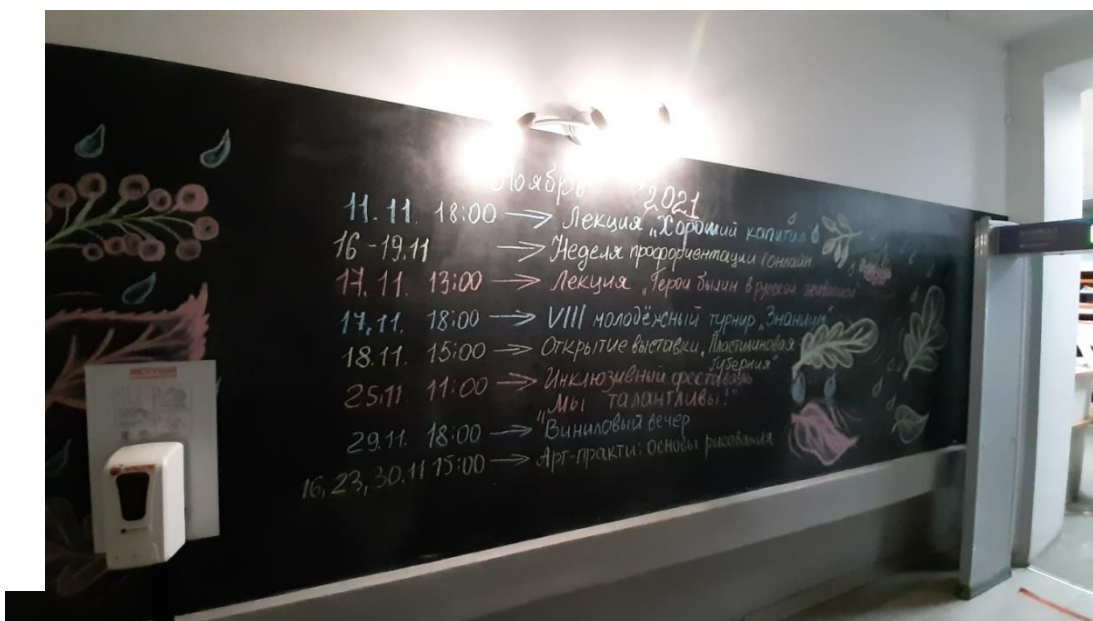 Ноябрь 2021
11.11. 18:00 → Лекция „Хороший капитал
16-19.11 → Неделя профориентации (онлайн
17.11. 13:00 → Лекция „Герои былин в русской живописи"
17.11. 18:00 → VIII молодёжный турнир „Знаниция"
18.11. 15:00 → Открытие выставки „Пластилиновая
губерния"
25.11. 11:00 → Инклюзивный фестиваль
„Мы талантливы!"
29.11. 18:00 → Виниловый вечер
16, 23, 30.11 15:00 → Арт-практи: основы рисования
ИНСТРУКЦИЯ